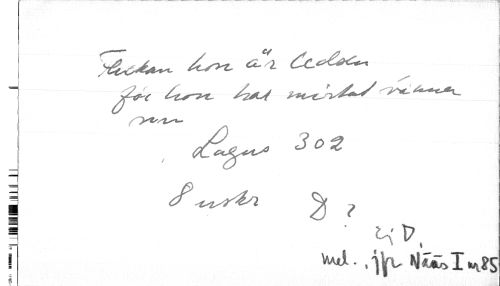 Flickan hon är ledsen
för hon har mistat vännen
sin
Lagus 302
8 uskr D ?
Ej D,
mel., jfr Nääs I nr 85